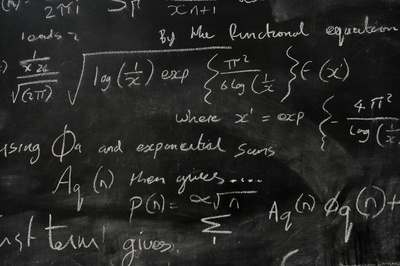 2πi Sp xn+1
leads 2 By the functional equation
x^(1/24) / √(2π) √(log(1/x)) exp { π² / 6 log(1/x) } F(x')
where x' = exp { - 4π² / log(1/x)
using Φa and exponential sums
Aq(n) then gives....
P(n) = α√n Σ Aq(n) Φq(n)+
1
term' gives.